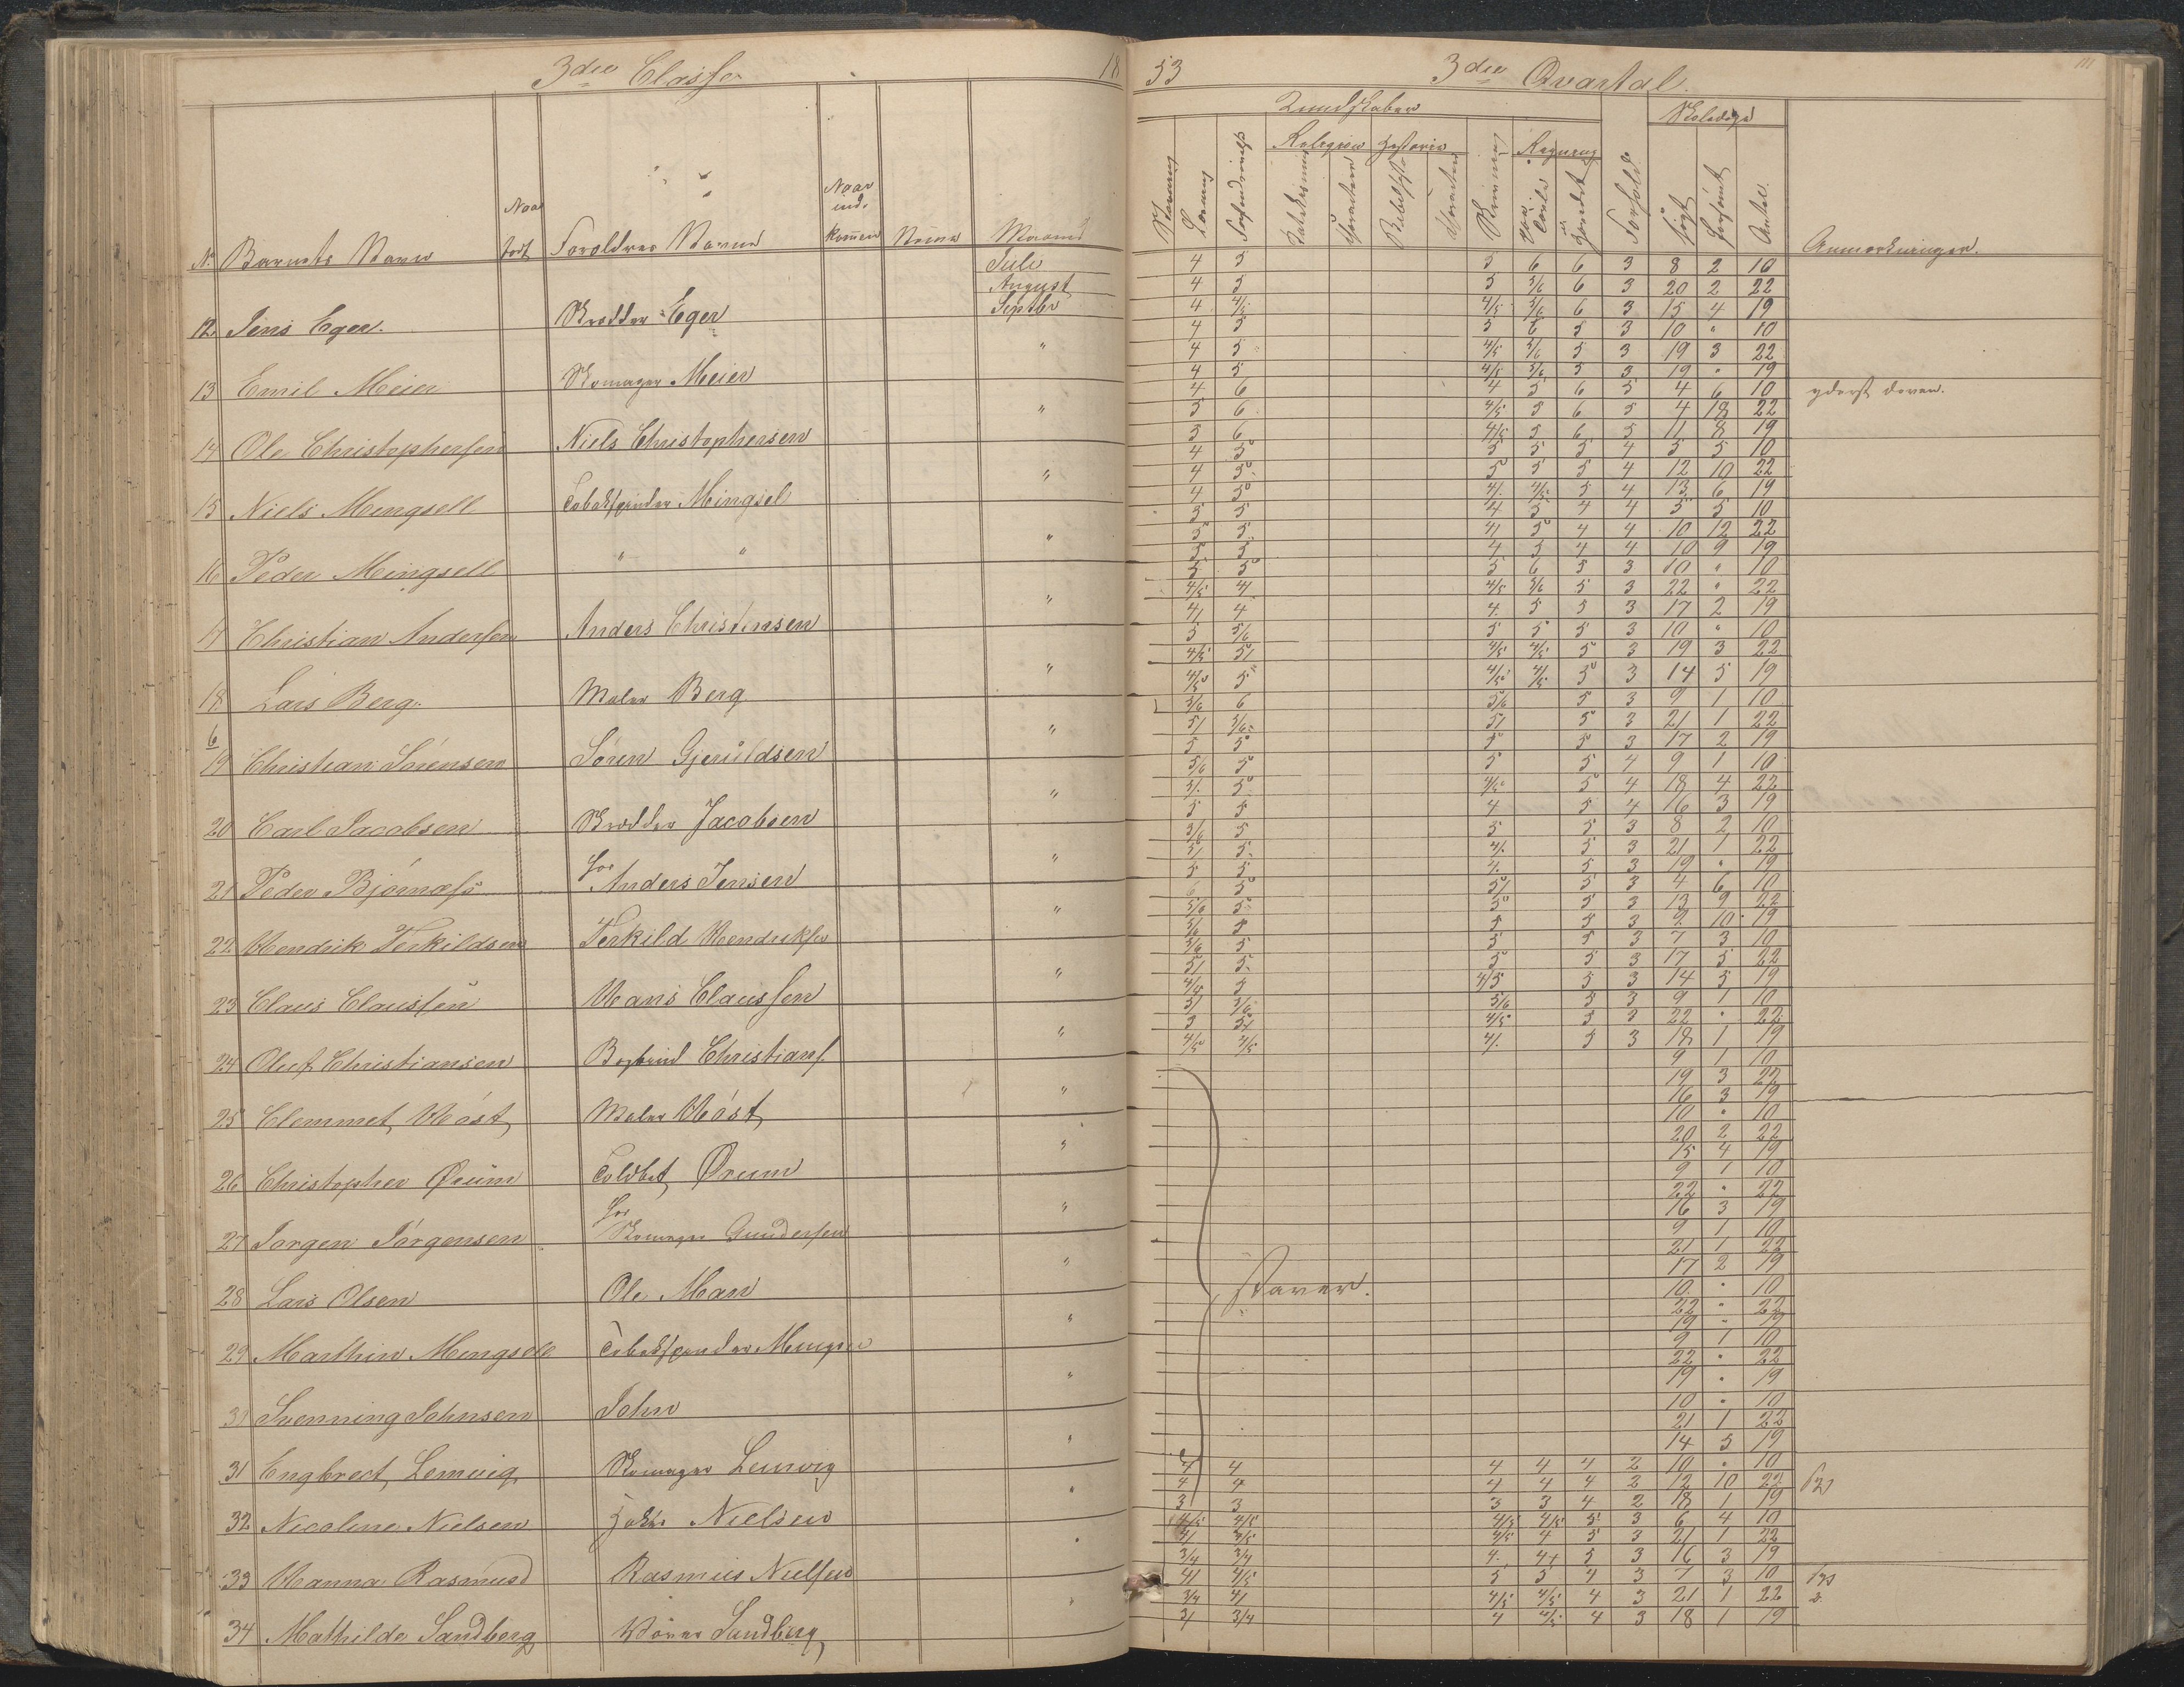 3die Classe 18
53 3die Qvartal.
Kundskaber Skoledage
Religion Historie Regning
No Barnets Navn Naar født Forældres Navne Naar ind. kommen Maaned
Stavning Læsning Katekismus Forklaring Skrivning Tavle Hovedet Forhold Søgt Forsømt Antal Anmærkninger.
Juli 4 5 5 6 6 3 8 2 10
August 4 5 5 5/6 6 3 20 2 22
12 Jens Eger. Skrædder Eger Septbr 4 4/5 4/5 5/6 6 3 15 4 19
4 5 5 6 5 3 10 " 10
" 4 5 4/5 5/6 5 3 19 3 22
13 Emil Meier Skomager Meier 4 5 4/5 5/6 5 3 19 " 19
4 6 4 5 6 5 4 6 10 yderst doven.
" 5 6 4/5 5 6 5 4 18 22
14 Ole Christophersen Niels Christophersen 5 6 4/5 5 6 5 11 8 19
4 5 5 5 5 4 5 5 10
" 4 5 5 5 5 4 12 10 22
15 Niels Mengsell Tobaksspinder Mingsel 4 5 4 4/5 5 4 13 6 19
5 5 4 5 4 4 5 5 10
" 5 5 4 5 4 4 10 12 22
16 Peder Mingsell " " 5 5 4 5 4 4 10 9 19
5 5 5 6 5 3 10 " 10
" 4/5 4 4/5 5/6 5 3 22 " 22
17 Christian Andersen Anders Christensen 4 4 4 5 5 3 17 2 19
5 5/6 5 5 5 3 10 " 10
" 4/5 5 4/5 4/5 5 3 19 3 22
18 Lars Berg. Maler Berg 4/5 5 4/5 4/5 5 3 14 5 19
5/6 6 5/6 5 3 9 1 10
6 " 5 5/6 5 5 3 21 1 22
19 Christian Sörensen Sören Gjeruldsen 5 5 5 5 3 17 2 19
5/6 5 5 5 4 9 1 10
" 5 5 4/5 5 4 18 4 22
20 Carl Jacobsen Skrædder Jacobsen 5 5 4 5 4 16 3 19
5/6 5 5 5 3 8 2 10
" 5 5 4 5 3 21 1 22
21 Peder Björnæss for Anders Jensen 5 5 4 5 3 19 " 19
6 5 5 5 3 4 6 10
" 5/6 5 5 5 3 13 9 22
22 Hendrik Terkildsen Terkild Hendriksen 5/6 5 5 5 3 9 10 19
5/6 5 5 5 3 7 3 10
" 5 5 5 5 3 17 5 22
23 Claus Claussen Hans Claussen 4/5 5 4/5 5 3 14 5 19
5 5/6 5/6 5 3 9 1 10
" 5 5 4/5 5 3 22 " 22
24 Oluf Christiansen Christians 4/5 4/5 4 5 3 18 1 19
9 1 10
" 19 3 22
25 Clemmet Höst Maler Höst 16 3 19
10 " 10
" 20 2 22
26 Christopher Ørum Toldbet Ørum 15 4 19
9 1 10
" 22 " 22
27 Jörgen Jörgensen for Skomager Gundersen 16 3 19
9 1 10
" 21 1 22
28 Lars Olsen Ole Man 17 2 19
staver. 10 " 10
" 22 " 22
29 Marthin Mengsell Tobaksspinder 19 " 19
9 1 10
" 22 " 22
30 Svenning Johnsen John 19 " 19
10 " 10
" 21 1 22
31 Engbrect Lemvig Skomager Lemvig 14 5 19
4 4 4 4 4 2 10 " 10
" 4 4 4 4 4 2 12 10 22
32 Nicoline Nielsen Nielsen 3 3 3 3 4 2 18 1 19
4/5 4/5 4/5 4/5 5 3 6 4 10
" 4 4/5 4/5 4 5 3 21 1 22
33 Hanna Rasmusd Rasmus Nielsen 3/4 3/4 4 4 5 3 16 3 19
4 4/5 5 5 4 3 7 3 10
" 3/4 4 4/5 4/5 4 3 21 1 22
34 Mathilde Sandberg Sandberg 3 3/4 4 4/5 4 3 18 1 19